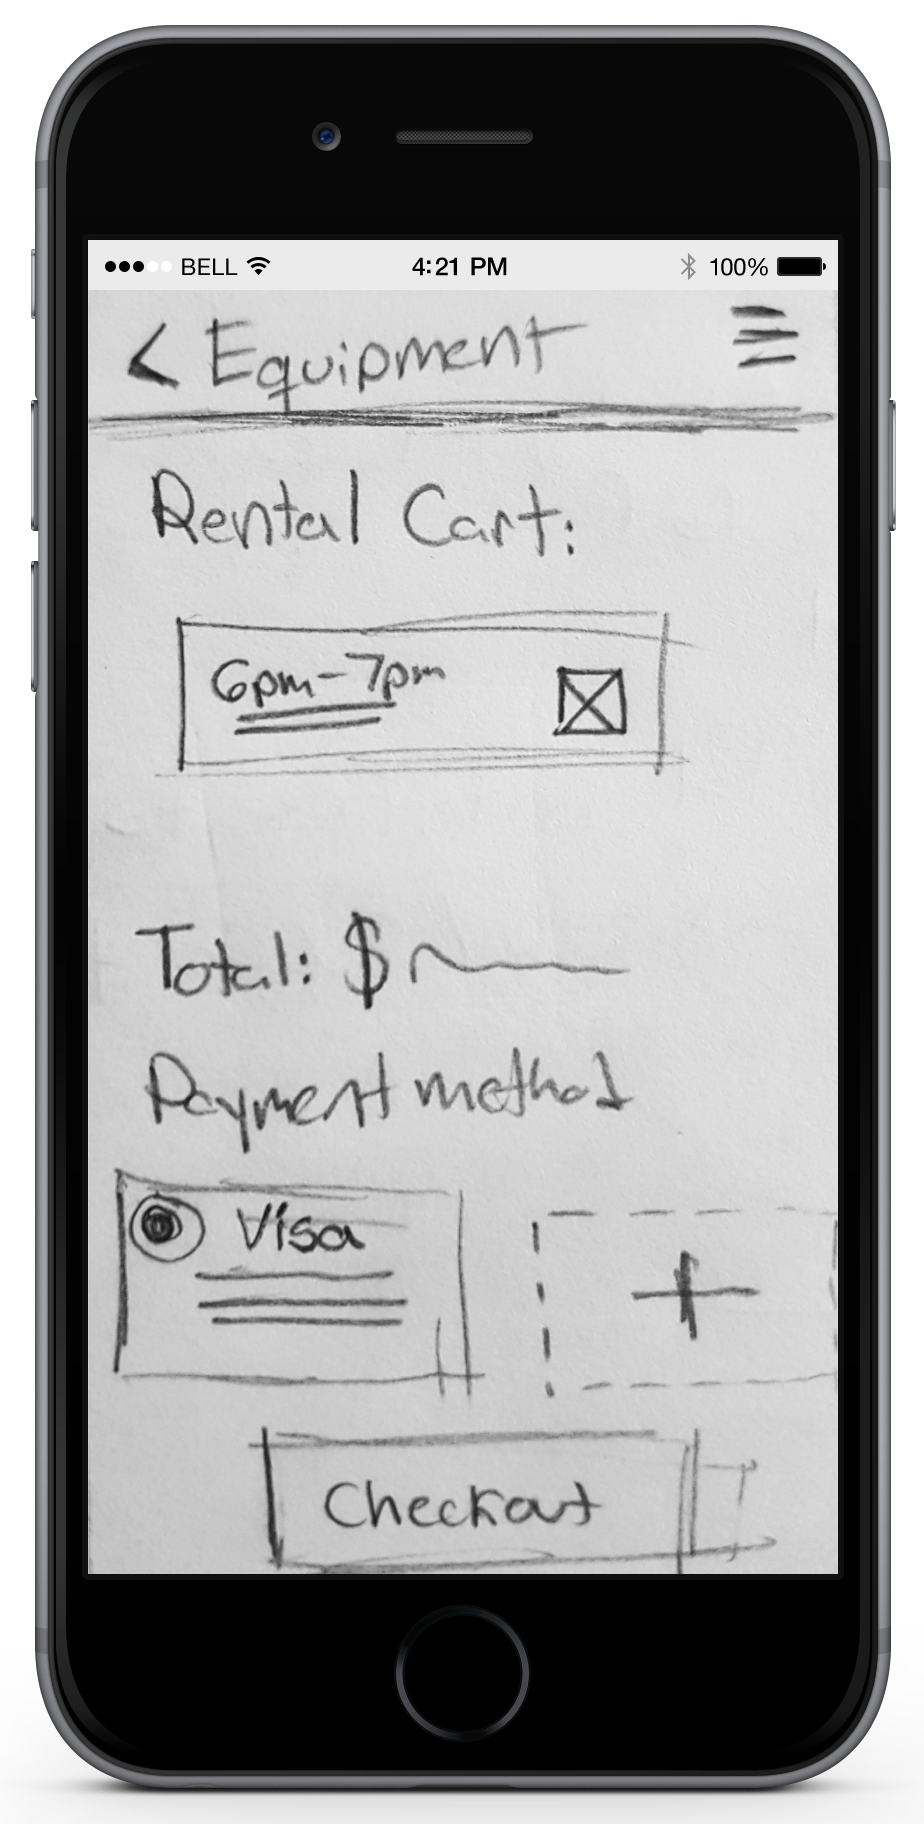 BELL 4:21 PM 100%
< Equipment
Rental Cart:
6pm-7pm
Total: $
Payment method
Visa
+
Checkout